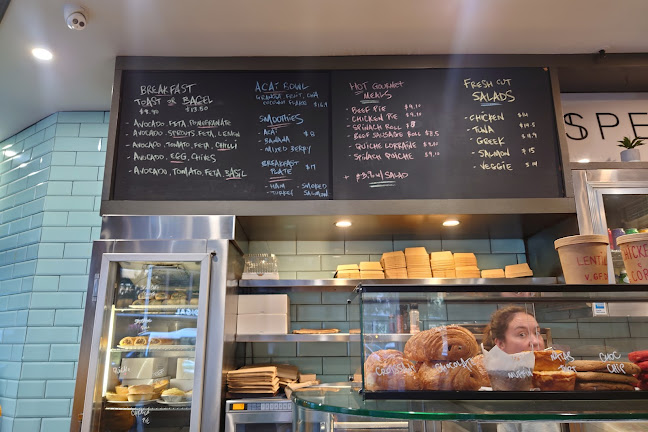 BREAKFAST
TOAST OR BAGEL
$9.90 $13.50
- AVOCADO, FETA POMEGRANATE
- AVOCADO, SPROUTS, FETA, LEMON
- AVOCADO, TOMATO, FETA, CHILLI
- AVOCADO, EGG, CHIVES
- AVOCADO, TOMATO, FETA, BASIL
ACAI BOWL
GRANOLA FRUIT, CHIA
COCONUT FLAKES $16.9
SMOOTHIES
- ACAI $8
- BANANA
- MIXED BERRY
BREAKFAST
PLATE $17
- HAM - SMOKED
- TURKEY SALMON
HOT GOURMET
MEALS
- BEEF PIE $9.10
- CHICKEN PIE $9.10
- SPINACH ROLL $8
- BEEF SAUSAGE ROLL $8.5
- QUICHE LORRAINE
- SPINACH QUICHE $9.10
W/ SALAD
FRESH CUT
SALADS
- CHICKEN
- TUNA
- GREEK
- SALMON
- VEGGIE $14
SPE
LENTIL
V.GF
CHICKEN
&
COR
CHOC
CHIP
PIE